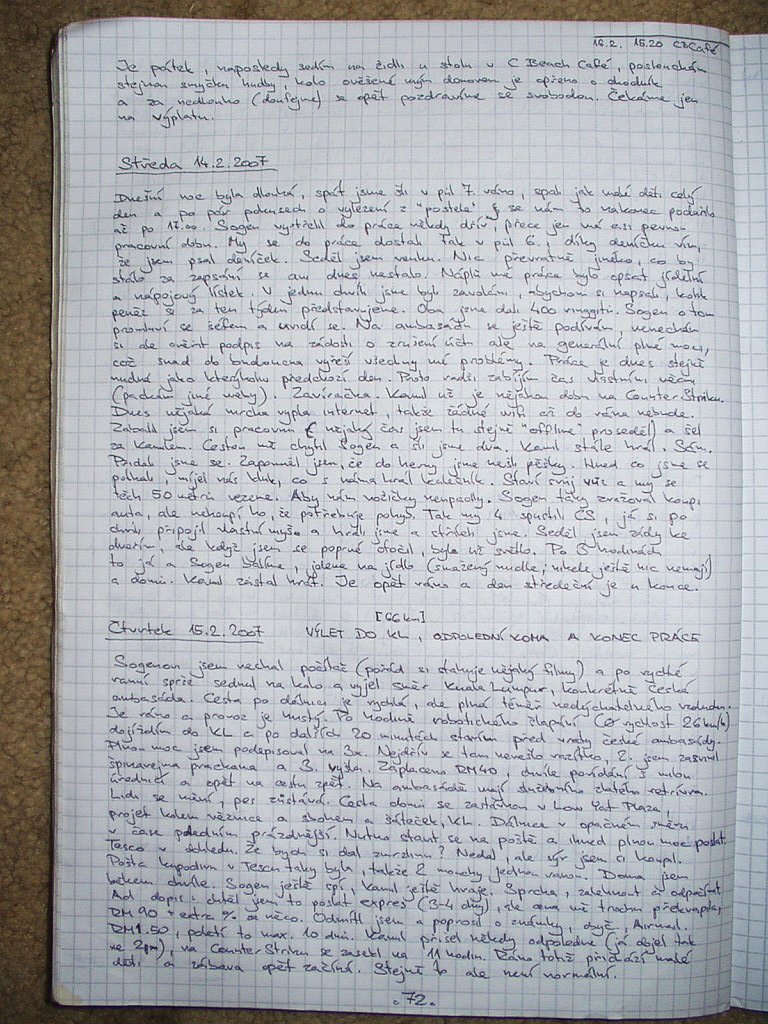 16.2. 15.20 CBCafé
Je pátek, naposledy sedím na židli u stolu v C Beach Café, poslouchám
stejnou smyčku hudby, kolo ověšené mým domovem je opřeno o chodník
a za nedlouho (doufejme) se opět pozdravíme se svobodou. Čekáme jen
na výplatu.
Středa 14.2.2007
Dnešní noc byla dlouhá, spát jsme šli v půl 7. ráno, spali jak malé děti celý
den a po pár pokusech o vylezení z "postele" se nám to nakonec podařilo
až po 17.00. Sogen vystřelil do práce někdy dřív, přece jen má asi pevnou
pracovní dobu. My se do práce dostali tak v půl 6., díky deníčku vím,
že jsem psal deníček. Seděl jsem venku. Nic převratně jiného, co by
stálo za zapsání se ani dnes nestalo. Náplní mé práce bylo opsat jídelní
a nápojový lístek. V jednu chvíli jsme byli zavoláni, abychom si napsali, kolik
peněz si za ten týden představujeme. Oba jsme dali 400 ringgitů. Sogen o tom
promluví se šéfem a uvidí se. Na ambasádu se ještě podívám, nenechám
si ale ověřit podpis na žádosti o zrušení účtu ale na generální plné moci,
což snad do budoucna vyřeší všechny mé problémy. Práce je dnes stejně
nudná jako kterýkoliv předchozí den. Proto radši zabíjím čas vlastními věcmi
(packám jiné weby). Zavíračka. Kamil už je nějakou dobu na CounterStriku.
Dnes nějaká mrcha vypla internet, takže žádné wifi až do rána nebude.
Zabalil jsem si pracovnu (nějaký čas jsem tu stejně "offline" proseděl) a šel
za Kamilem. Cestou mě chytil Sogen a šli jsme dva. Kamil stále hrál. Sám.
Přidali jsme se. Zapomněl jsem, že do herny jsme nešli pěšky. Hned co jsme se
potkali, míjel nás kluk, co s náma hrál kulečník. Staví svůj vůz a my se
těch 50 metrů vezeme. Aby nám nožičky neupadly. Sogen taky zvažoval koupi
auta, ale nekoupí ho, že potřebuje pohyb. Tak my 4 spustili CS, já si po
chvíli připojil vlastní myš a hráli jsme a stříleli jsme. Seděl jsem zády ke
dveřím, ale když jsem se poprvé otočil, bylo už světlo. Po 5 hodinách
to já a Sogen balíme, jdeme na jídlo (smažený nudle, nikde ještě nic nemají)
a domů. Kamil zůstal hrát. Je opět ráno a den středeční je u konce.
[66 km]
Čtvrtek 15.2.2007 VÝLET DO KL, ODPOLEDNÍ KOMA A KONEC PRÁCE
Sogenovi jsem nechal počítač (pořád si stahuje nějaký filmy) a po rychlé
ranní sprše sednul na kolo a vyjel směr Kuala Lumpur, konkrétně česká
ambasáda. Cesta po dálnici je rychlá, ale plná téměř nedýchatelného vzduchu.
Je ráno a provoz je hustý. Po hodině robotického šlapání (Ø rychlost 26 km/h)
dojíždím do KL a po dalších 20 minutách stavím před vraty české ambasády.
Plnou moc jsem podepisoval na 3x. Nejdřív se tam nevešlo razítko, 2. jsem zasvinil
špinavejma prackama a 3. vyšla. Zaplaceno RM40, chvíle povídání s milou
úřednicí a opět na cestu zpět. Na ambasádě mají služebního zlatého retrívra.
Lidi se mění, pes zůstává. Cesta domů se zastávkou v Low Yat Plaza,
projet kolem věznice a sbohem a šáteček, KL. Dálnice v opačném směru
v čase poledním prázdnější. Nutno stavit se na poště a ihned plnou moc poslat.
Tesco v dohledu. Že bych si dal zmrzlinu? Nedal, ale sýr jsem si koupil.
Pošta kupodivu v Tescu taky byla, takže 2 mouchy jednou ranou. Doma jsem
během chvíle. Sogen ještě spí, Kamil ještě hraje. Sprcha, zalehnout či odpočívat.
Ad dopis: chtěl jsem to poslat expres (3-4 dny), ale cena mě trochu překvapila,
RM 90 + extra % za něco. Odmítl jsem a poprosil o známky, obyč., Airmail.
RM1.50, poletí to max. 10 dnů. Kamil přišel někdy odpoledne (já dojel tak
ve 2pm), na CounterStriku se zasekl na 11 hodin. Ráno totiž přichází malé
děti a zábava opět začíná. Stejně to ale není normální.
.72.